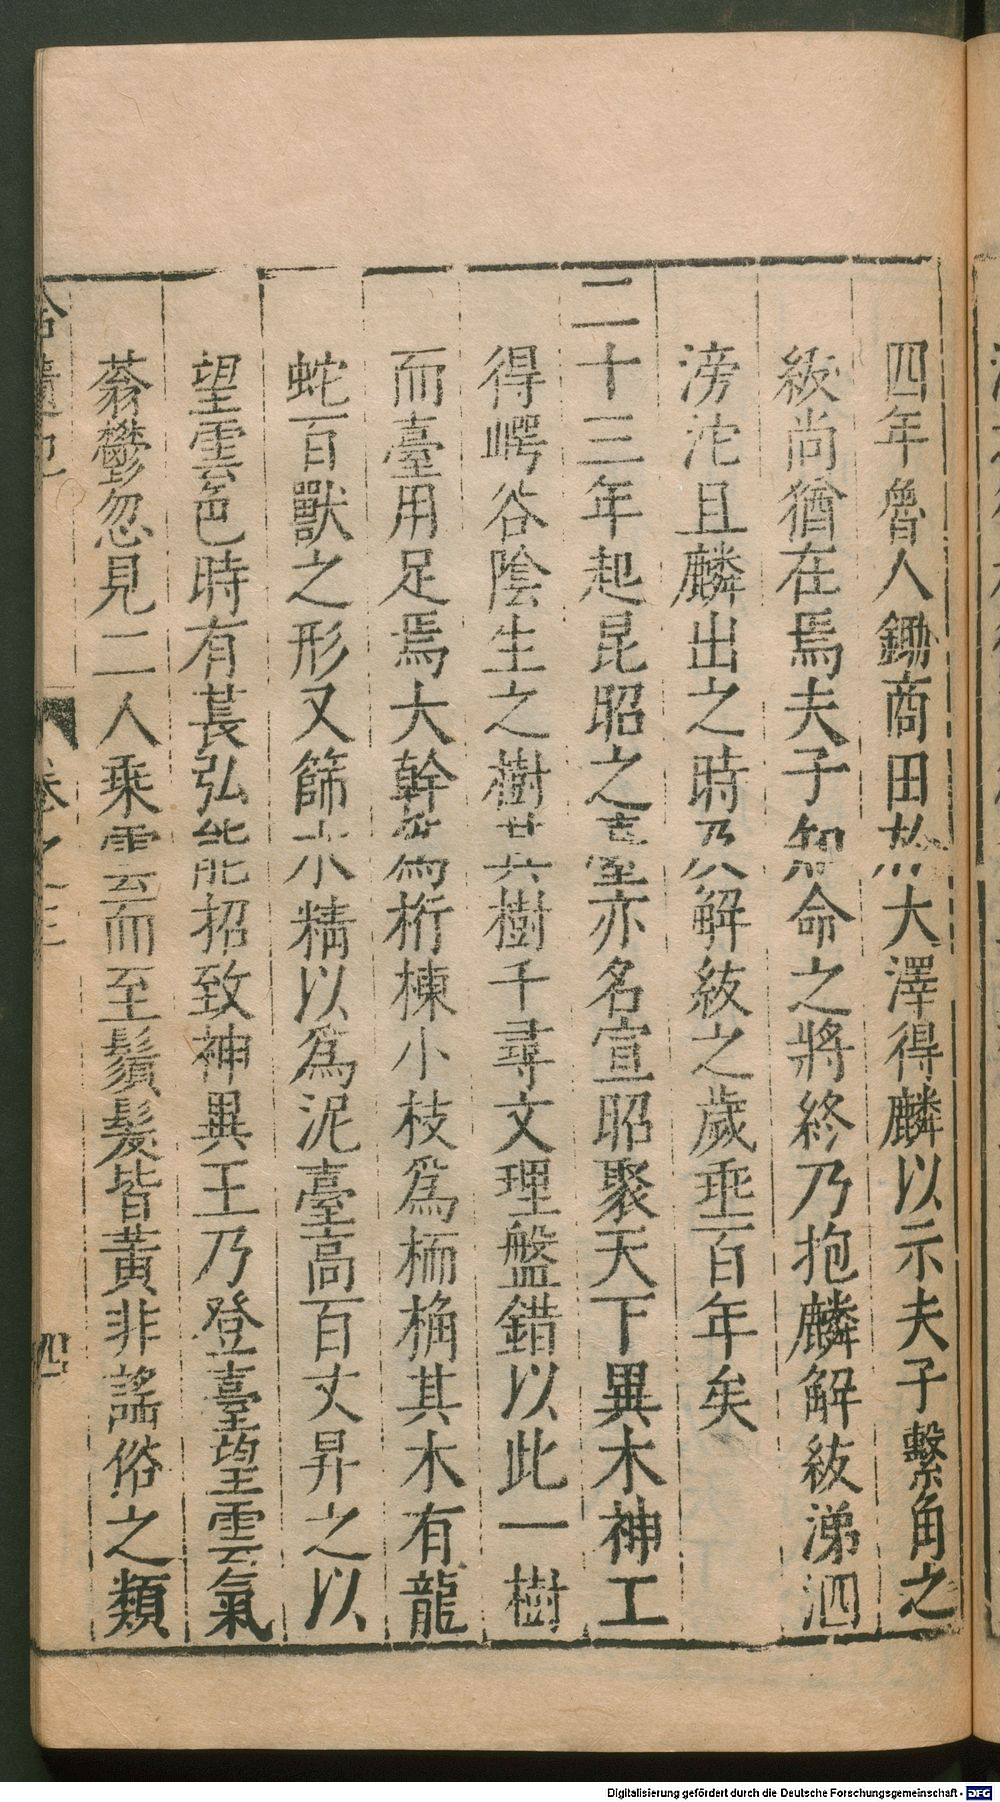 四年魯人鋤商田於大澤得麟以示夫子繫角之
紱尚猶在焉夫子知命之將終乃抱麟解紱涕泗
滂沱且麟出之時及解紱之歲垂百年矣
二十三年起昆昭之臺亦名宣昭聚天下異木神工
得崿谷陰生之樹其樹千尋文理盤錯以此一樹
而臺用足焉大幹為桁棟小枝爲栭桷其木有龍
蛇百獸之形又篩水精以爲泥臺高百丈昇之以
望雲色時有萇弘能招致神異王乃登臺望雲氣
蓊鬱忽見二人乘雲而至鬚髮皆黃非謠俗之類
拾遺記
卷之三
四
Digitalisierung gefördert durch die Deutsche Forschungsgemeinschaft - DFG